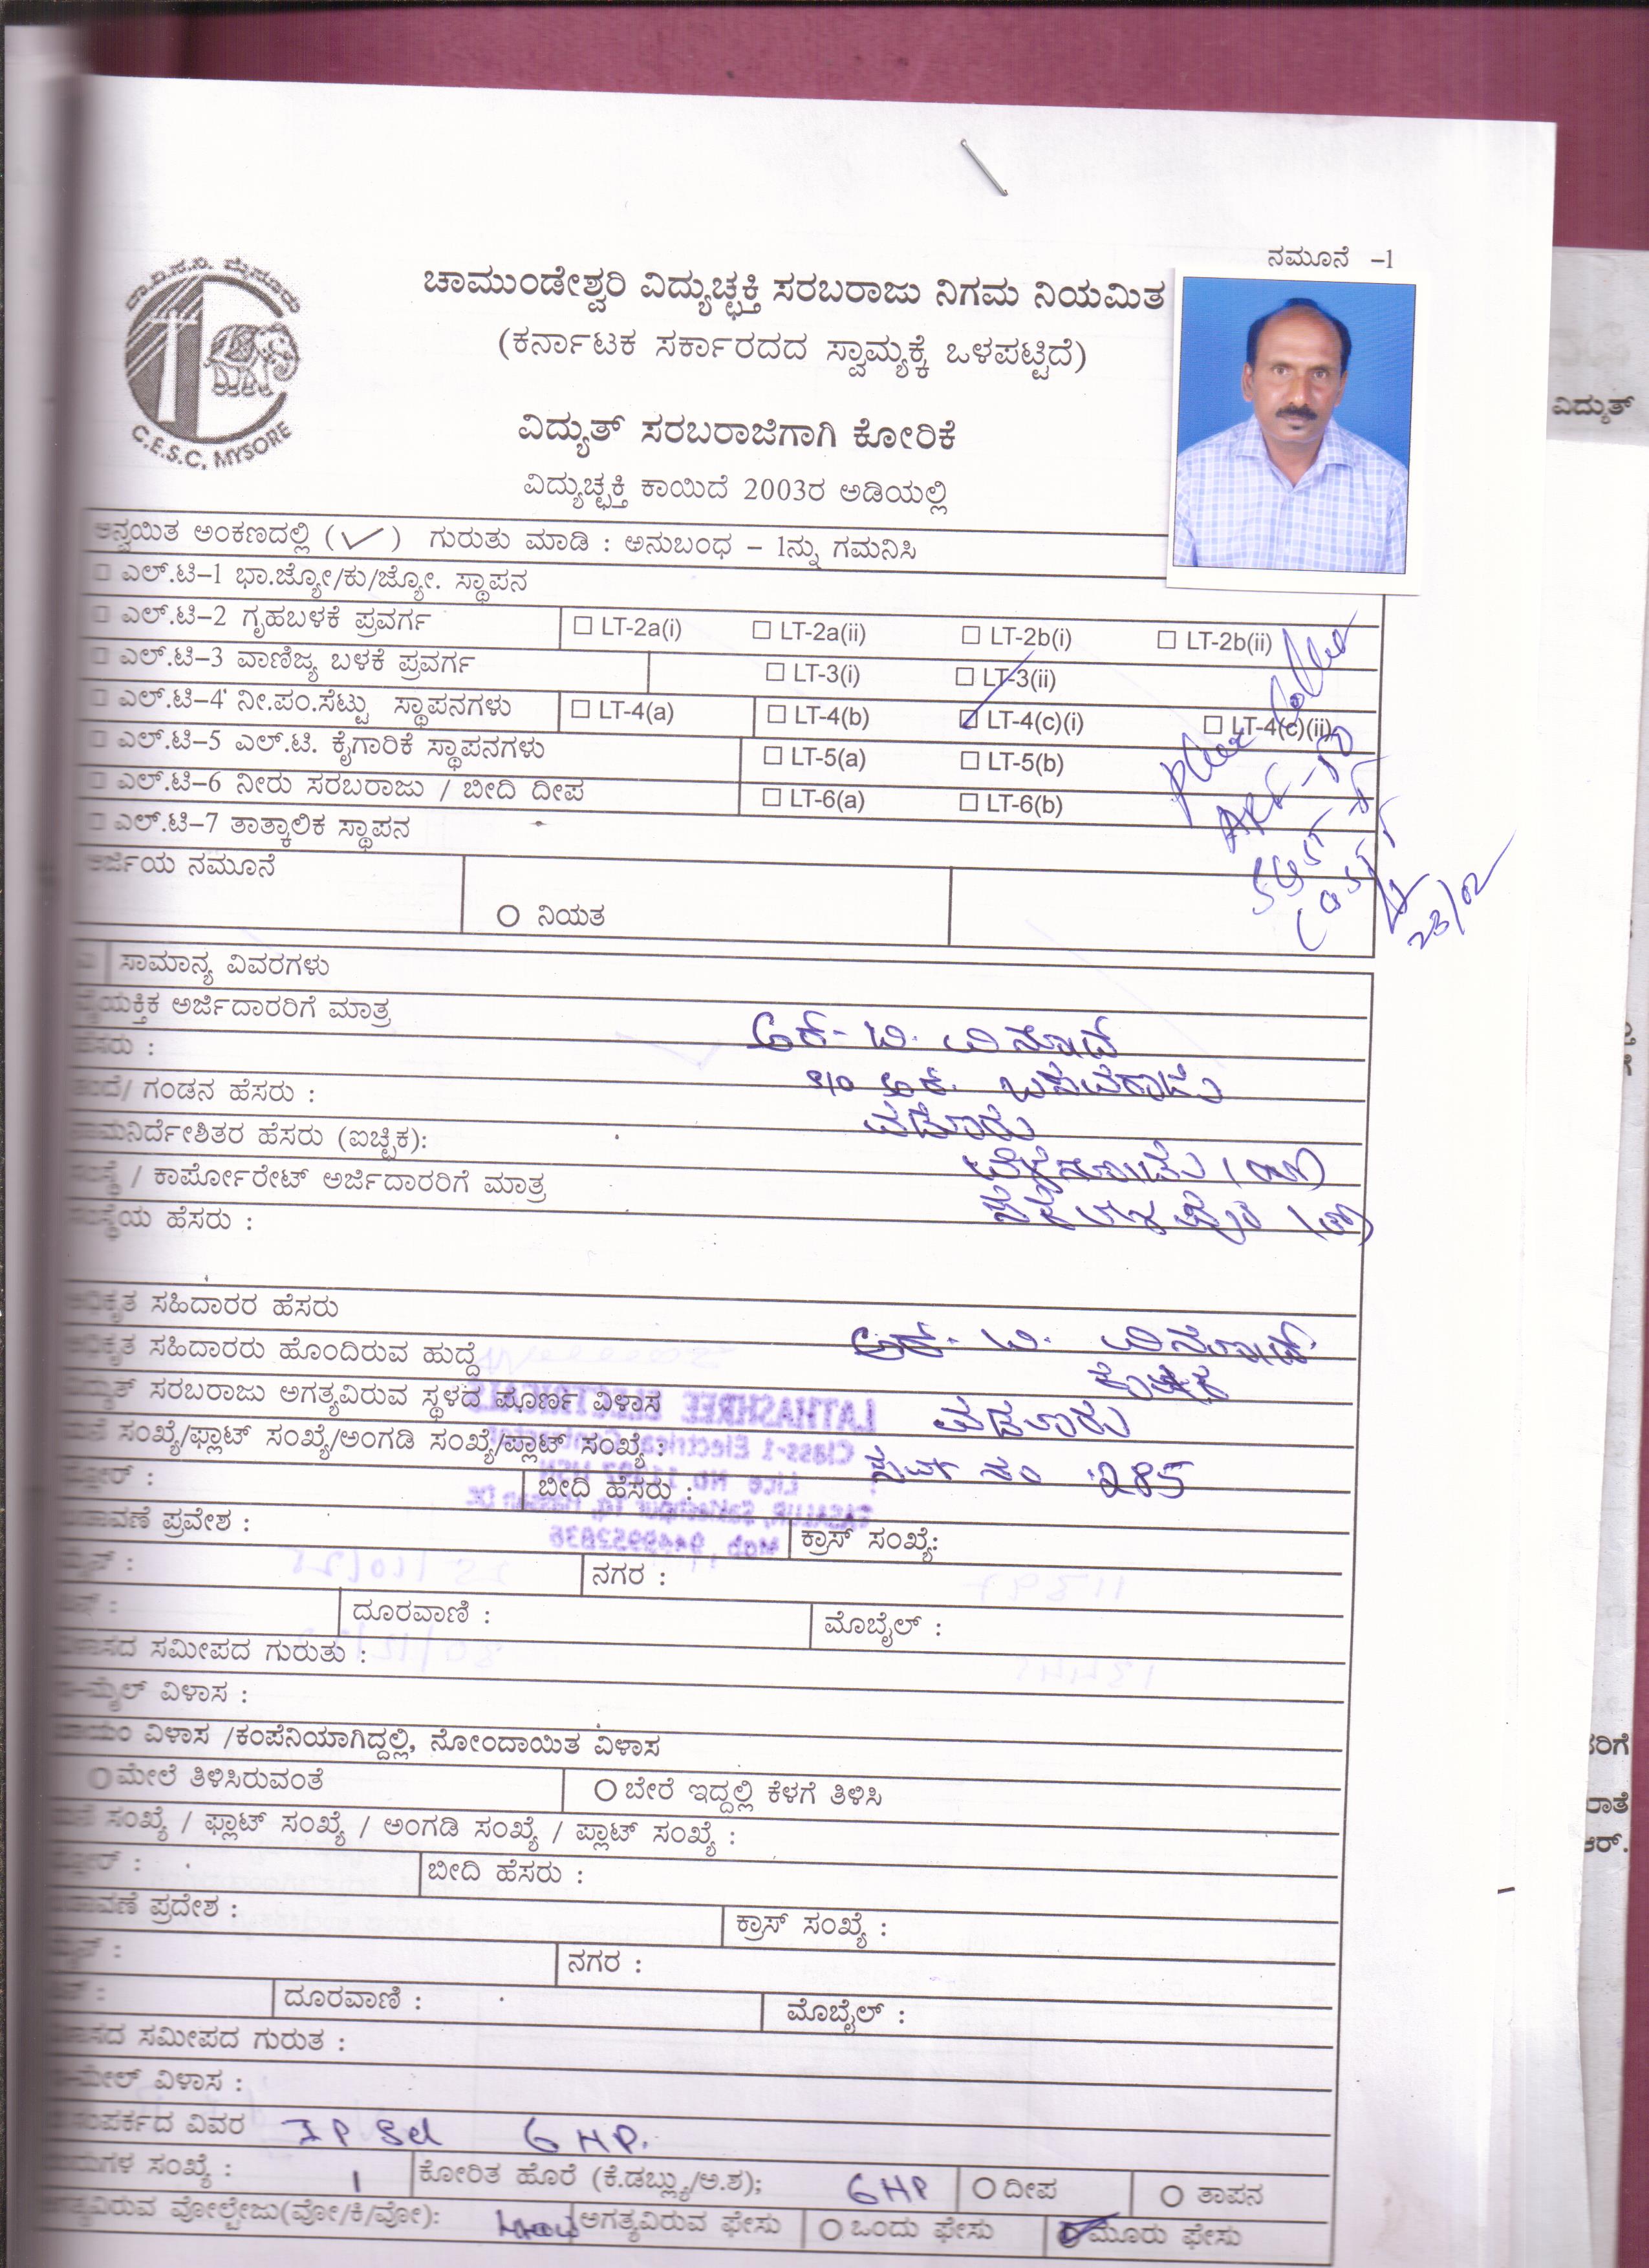 ನಮೂನೆ -1
ಚಾ.ವಿ.ಸ.ನಿ. ಮೈಸೂರು
C.E.S.C, MYSORE
ಚಾಮುಂಡೇಶ್ವರಿ ವಿದ್ಯುಚ್ಛಕ್ತಿ ಸರಬರಾಜು ನಿಗಮ ನಿಯಮಿತ
(ಕರ್ನಾಟಕ ಸರ್ಕಾರದದ ಸ್ವಾಮ್ಯಕ್ಕೆ ಒಳಪಟ್ಟಿದೆ)
ವಿದ್ಯುತ್ ಸರಬರಾಜಿಗಾಗಿ ಕೋರಿಕೆ
ವಿದ್ಯುತ್
ವಿದ್ಯುಚ್ಛಕ್ತಿ ಕಾಯಿದೆ 2003ರ ಅಡಿಯಲ್ಲಿ
ಅನ್ವಯಿತ ಅಂಕಣದಲ್ಲಿ (✓) ಗುರುತು ಮಾಡಿ : ಅನುಬಂಧ – 1ನ್ನು ಗಮನಿಸಿ
☐ ಎಲ್.ಟಿ–1 ಭಾ.ಜ್ಯೋ/ಕು/ಜ್ಯೋ. ಸ್ಥಾಪನ
☐ ಎಲ್.ಟಿ–2 ಗೃಹಬಳಕೆ ಪ್ರವರ್ಗ ☐ LT-2a(i) ☐ LT-2a(ii) ☐ LT-2b(i) ☐ LT-2b(ii)
☐ ಎಲ್.ಟಿ–3 ವಾಣಿಜ್ಯ ಬಳಕೆ ಪ್ರವರ್ಗ ☐ LT-3(i) ☐ LT-3(ii)
☐ ಎಲ್.ಟಿ–4 ನೀ.ಪಂ.ಸೆಟ್ಟು ಸ್ಥಾಪನಗಳು ☐ LT-4(a) ☐ LT-4(b) ☑ LT-4(c)(i) ☐ LT-4(c)(ii)
☐ ಎಲ್.ಟಿ–5 ಎಲ್.ಟಿ. ಕೈಗಾರಿಕೆ ಸ್ಥಾಪನಗಳು ☐ LT-5(a) ☐ LT-5(b)
☐ ಎಲ್.ಟಿ–6 ನೀರು ಸರಬರಾಜು / ಬೀದಿ ದೀಪ ☐ LT-6(a) ☐ LT-6(b)
☐ ಎಲ್.ಟಿ–7 ತಾತ್ಕಾಲಿಕ ಸ್ಥಾಪನ
23/02
ಅರ್ಜಿಯ ನಮೂನೆ
○ ನಿಯತ
ಸಾಮಾನ್ಯ ವಿವರಗಳು
ವೈಯಕ್ತಿಕ ಅರ್ಜಿದಾರರಿಗೆ ಮಾತ್ರ
ಹೆಸರು : ಆರ್. ಬಿ. ವಿನೋದ್
ತಂದೆ/ ಗಂಡನ ಹೆಸರು :
ನಾಮನಿರ್ದೇಶಿತರ ಹೆಸರು (ಐಚ್ಛಿಕ):
ಸಂಸ್ಥೆ / ಕಾರ್ಪೋರೇಟ್ ಅರ್ಜಿದಾರರಿಗೆ ಮಾತ್ರ
ಸಂಸ್ಥೆಯ ಹೆಸರು :
ಅಧಿಕೃತ ಸಹಿದಾರರ ಹೆಸರು
ಅಧಿಕೃತ ಸಹಿದಾರರು ಹೊಂದಿರುವ ಹುದ್ದೆ ಆರ್. ಬಿ. ವಿನೋದ್
ವಿದ್ಯುತ್ ಸರಬರಾಜು ಅಗತ್ಯವಿರುವ ಸ್ಥಳದ ಪೂರ್ಣ ವಿಳಾಸ
ಮನೆ ಸಂಖ್ಯೆ/ಫ್ಲಾಟ್ ಸಂಖ್ಯೆ/ಅಂಗಡಿ ಸಂಖ್ಯೆ/ಪ್ಲಾಟ್ ಸಂಖ್ಯೆ :
ಫ್ಲೋರ್ : ಬೀದಿ ಹೆಸರು : ಸರ್ವೆ ನಂ 285
ಬಡಾವಣೆ ಪ್ರವೇಶ : ಕ್ರಾಸ್ ಸಂಖ್ಯೆ:
ಮೈನ್ : ನಗರ :
ಪಿನ್ : ದೂರವಾಣಿ : ಮೊಬೈಲ್ :
ವಿಳಾಸದ ಸಮೀಪದ ಗುರುತು :
ಇ-ಮೈಲ್ ವಿಳಾಸ :
ಖಾಯಂ ವಿಳಾಸ /ಕಂಪೆನಿಯಾಗಿದ್ದಲ್ಲಿ, ನೋಂದಾಯಿತ ವಿಳಾಸ
○ ಮೇಲೆ ತಿಳಿಸಿರುವಂತೆ ○ ಬೇರೆ ಇದ್ದಲ್ಲಿ ಕೆಳಗೆ ತಿಳಿಸಿ
ಮನೆ ಸಂಖ್ಯೆ / ಫ್ಲಾಟ್ ಸಂಖ್ಯೆ / ಅಂಗಡಿ ಸಂಖ್ಯೆ / ಪ್ಲಾಟ್ ಸಂಖ್ಯೆ :
ಫ್ಲೋರ್ : ಬೀದಿ ಹೆಸರು :
ಬಡಾವಣೆ ಪ್ರದೇಶ : ಕ್ರಾಸ್ ಸಂಖ್ಯೆ :
ಮೈನ್ : ನಗರ :
ಪಿನ್ : ದೂರವಾಣಿ : ಮೊಬೈಲ್ :
ವಿಳಾಸದ ಸಮೀಪದ ಗುರುತ :
ಇ-ಮೇಲ್ ವಿಳಾಸ :
ಸಂಪರ್ಕದ ವಿವರ IP Set 6 HP.
ಸಂಖ್ಯೆ : 1 ಕೋರಿತ ಹೊರೆ (ಕೆ.ಡಬ್ಲ್ಯು/ಅ.ಶ); 6 HP ○ ದೀಪ ○ ತಾಪನ
ಅಗತ್ಯವಿರುವ ವೋಲ್ಟೇಜು(ವೋ/ಕಿ/ವೋ): ಅಗತ್ಯವಿರುವ ಫೇಸು ○ ಒಂದು ಫೇಸು ಮೂರು ಫೇಸು